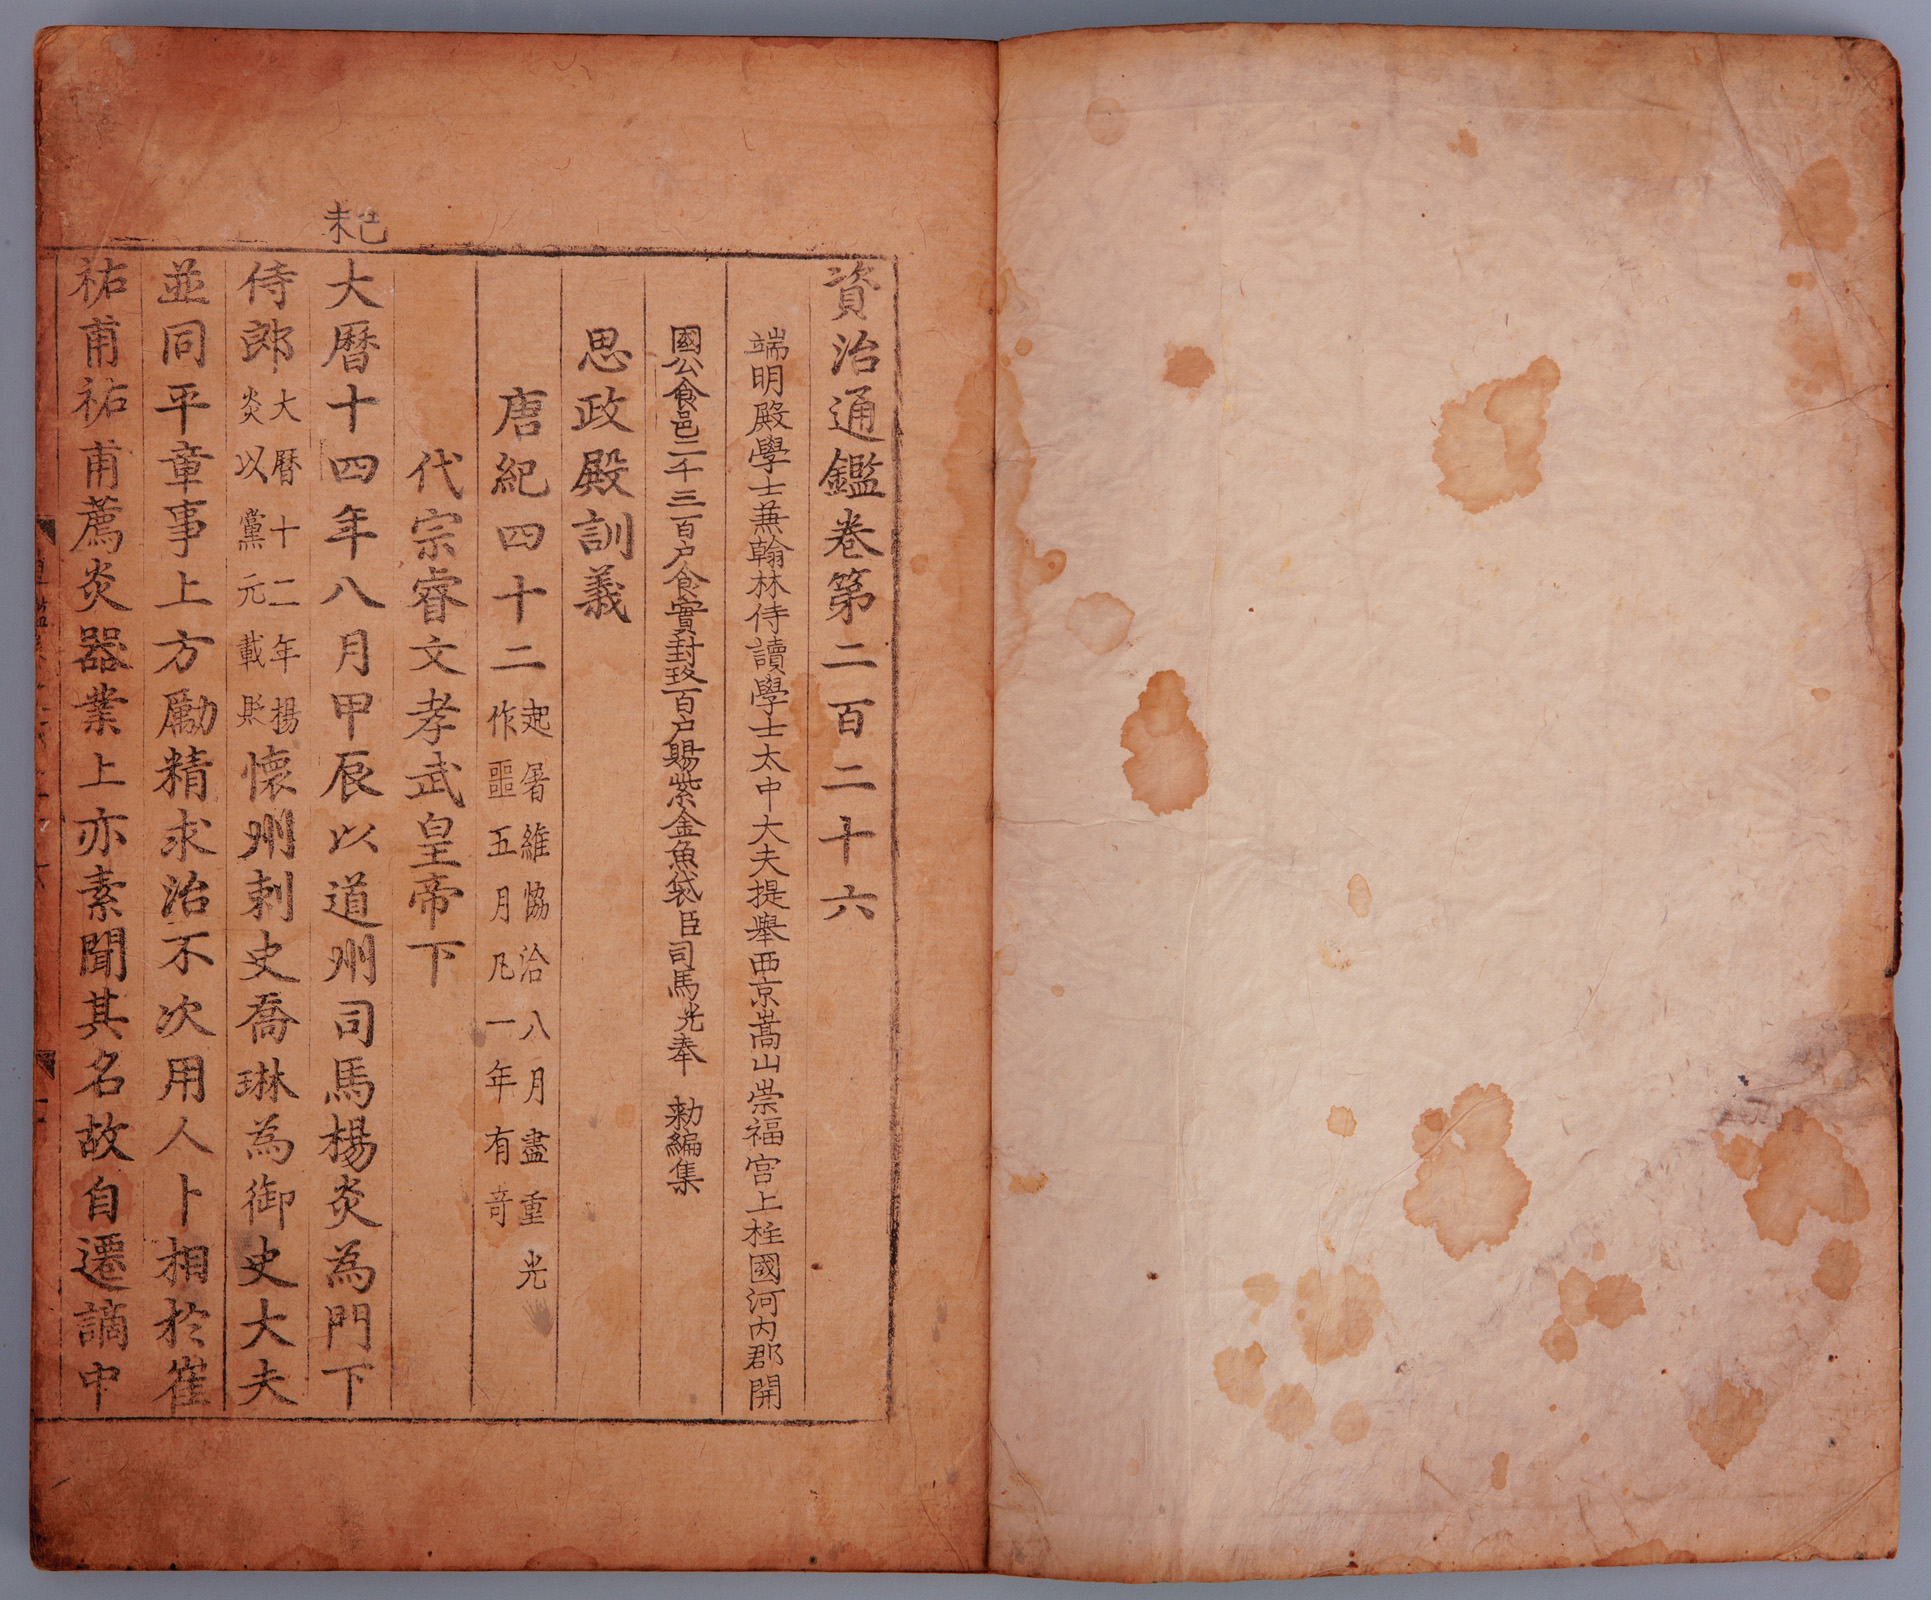 資治通鑑卷第二百二十六
端明殿學士兼翰林侍讀學士太中大夫提舉西京嵩山崇福宮上柱國河內郡開
國公食邑二千三百户食實封玖百户賜紫金魚袋臣司馬光奉 勑編集
思政殿訓義
唐紀四十二起屠維恊洽八月盡重光
作噩五月凡一年有奇
代宗睿文孝武皇帝下
己未
大曆十四年八月甲辰以道州司馬楊炎為門下
侍郎大曆十二年楊
炎以黨元載貶懷州刺史喬琳為御史大夫
並同平章事上方勵精求治不次用人卜相於崔
祐甫祐甫薦炎器業上亦素聞其名故自遷謫中